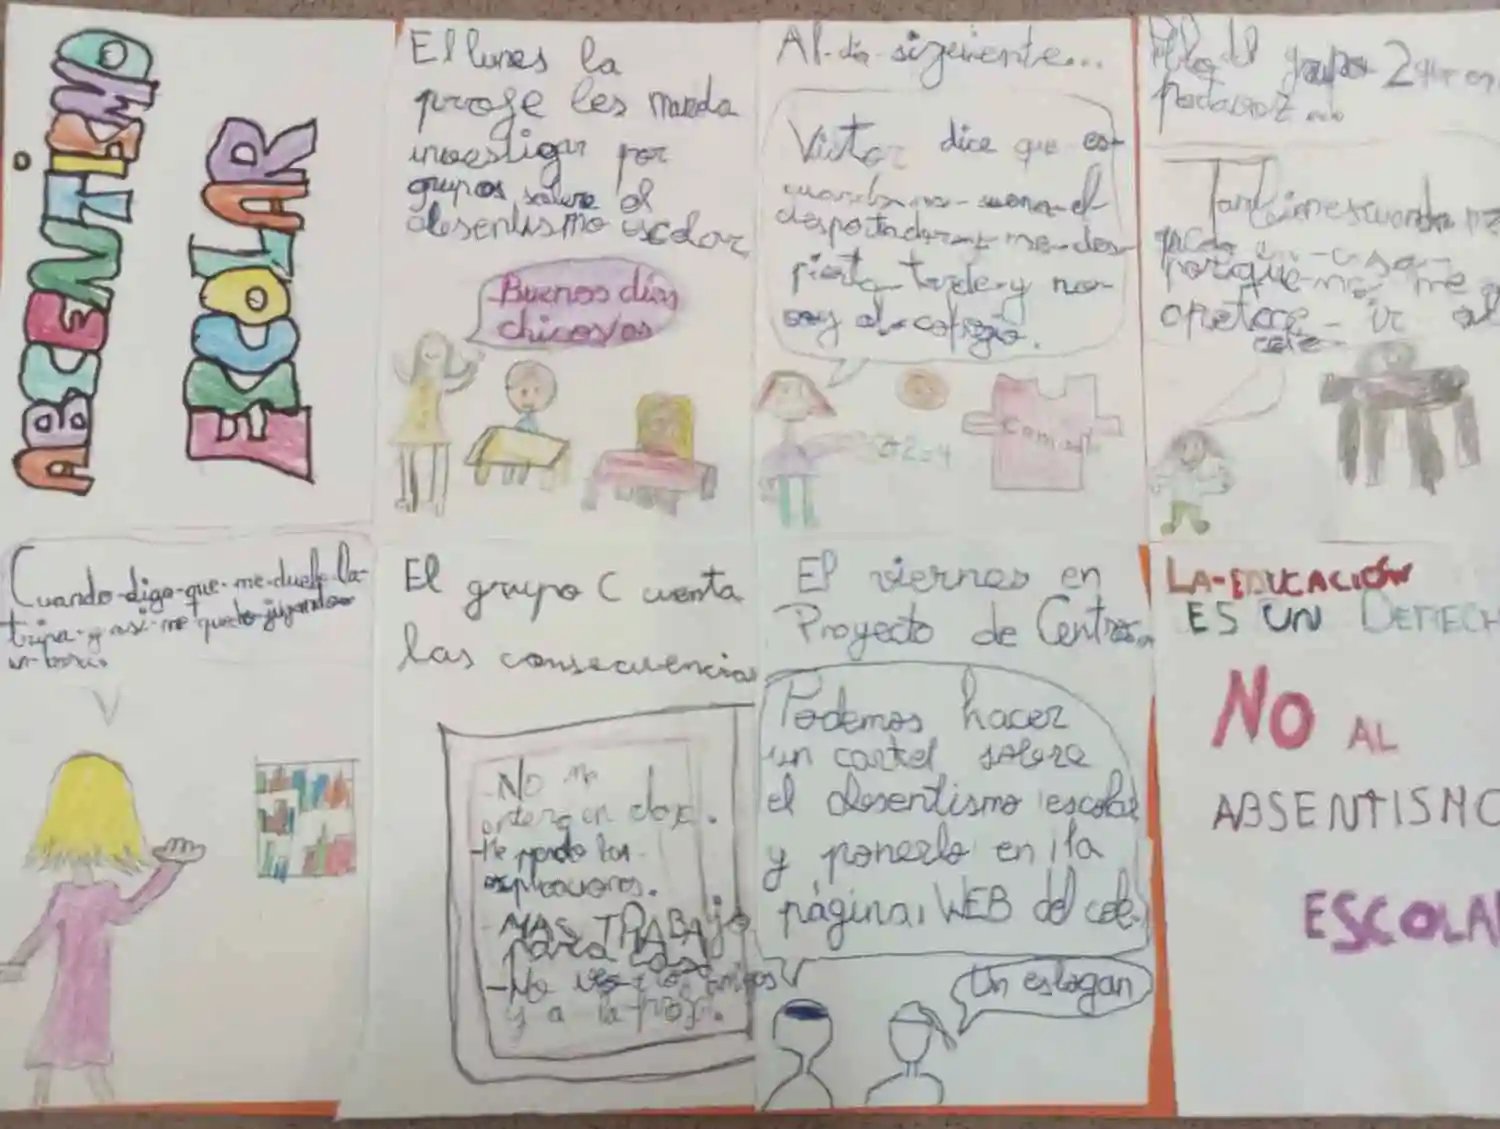 ABSCENTISMO
ESCOLAR
El lunes la
profe les manda
investigar por
grupos sobre el
absentismo escolar
Buenos días
chicos/as
Al día siguiente...
Victor dice que es
cuando no suena el
despertador y me des-
pierto tarde y no
voy al colegio.
2=4
del grupo 2
También es cuando me
quedo en casa
porque no me
apetece ir al
cole
Cuando digo que me duele la
tripa y asi me quedo jugando
El grupo C cuenta
las consecuencias
-No me
entero en clase.
-Me pierdo las
explicaciones.
-MAS TRABAJO
para
-No veo a los amigos
y a la profe.
El viernes en
Proyecto de Centro
Podemos hacer
un cartel sobre
el absentismo escolar
y ponerlo en la
página WEB del cole
Un eslogan
LA EDUCACIÓN
ES UN DERECH
NO AL
ABSENTISMO
ESCOLA